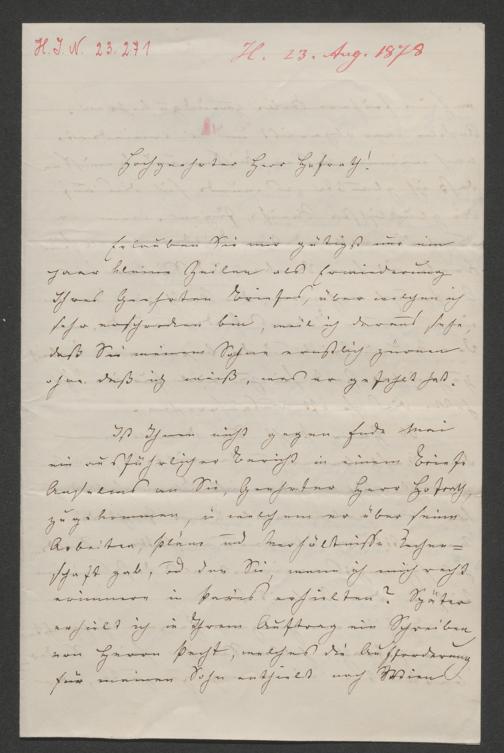 H. I. N. 23.271
H. 23. Aug. 1878
Hochgeehrter Herr Hofrath!
Erlauben Sie mir gütigst nur ein
paar kleine Zeilen als Erwiederung
Ihres Geehrten Briefes, über welchen ich
sehr erschrocken bin, weil ich daraus sehe,
daß Sie meinem Sohne ernstlich zürnen
ohne daß ich weiß, was er gefehlt hat.
Ist Ihnen nicht gegen Ende Mai
ein ausführlicher Bericht in einem Briefe
Anselms an Sie, Geehrter Herr Hofrath,
zugekommen, in welchem er über seine
Arbeiten, Pläne und Verhältnisse Rechen=
schaft gab, und den Sie, wenn ich mich recht
erinnere in Paris erhielten? Später
erhielt ich in Ihrem Auftrag ein Schreiben
von Herrn Pecht, welches die Aufforderung
für meinen Sohn enthielt nach Wien